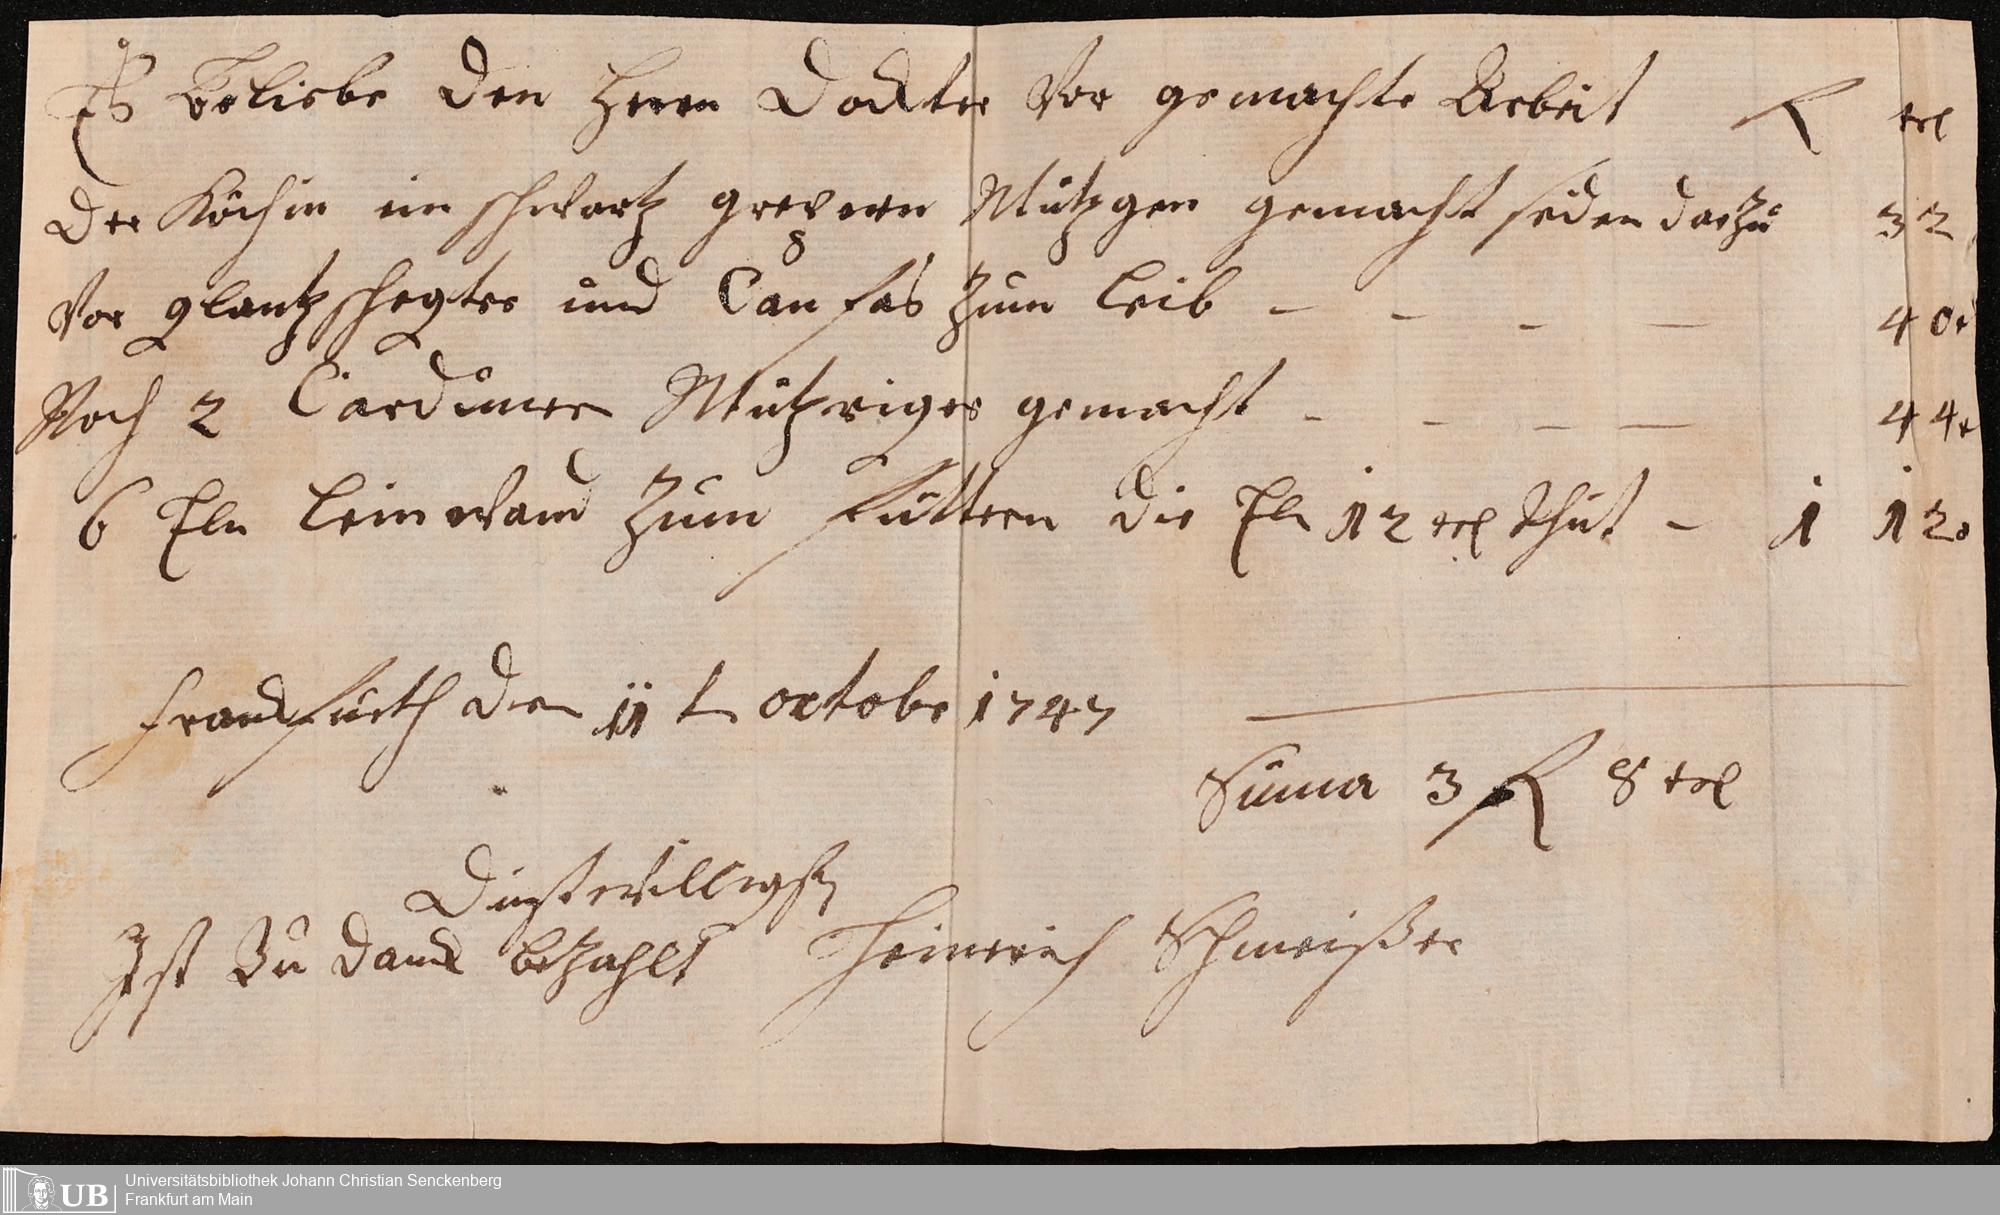 Es Beliebe den Herrn Dockter Vor gemachte Arbeit R xrl
Der Köchin ein schwartz Mützgen gemacht seiden darzu 32
Vor glantz und Canfas zum leib – – – – 40x
Noch 2 Mütz gemacht – – – – 44x
6 Eln leinwand zum füttern die Eln 12 xrl thut – 1 12x
franckfurth den 11 t octobr 1747
Suma 3 R 8 xrl
Dinstwilligst
Ist Zu danck betzahlt Heinrich Schmeißer
Universitätsbibliothek Johann Christian Senckenberg
Frankfurt am Main
UB